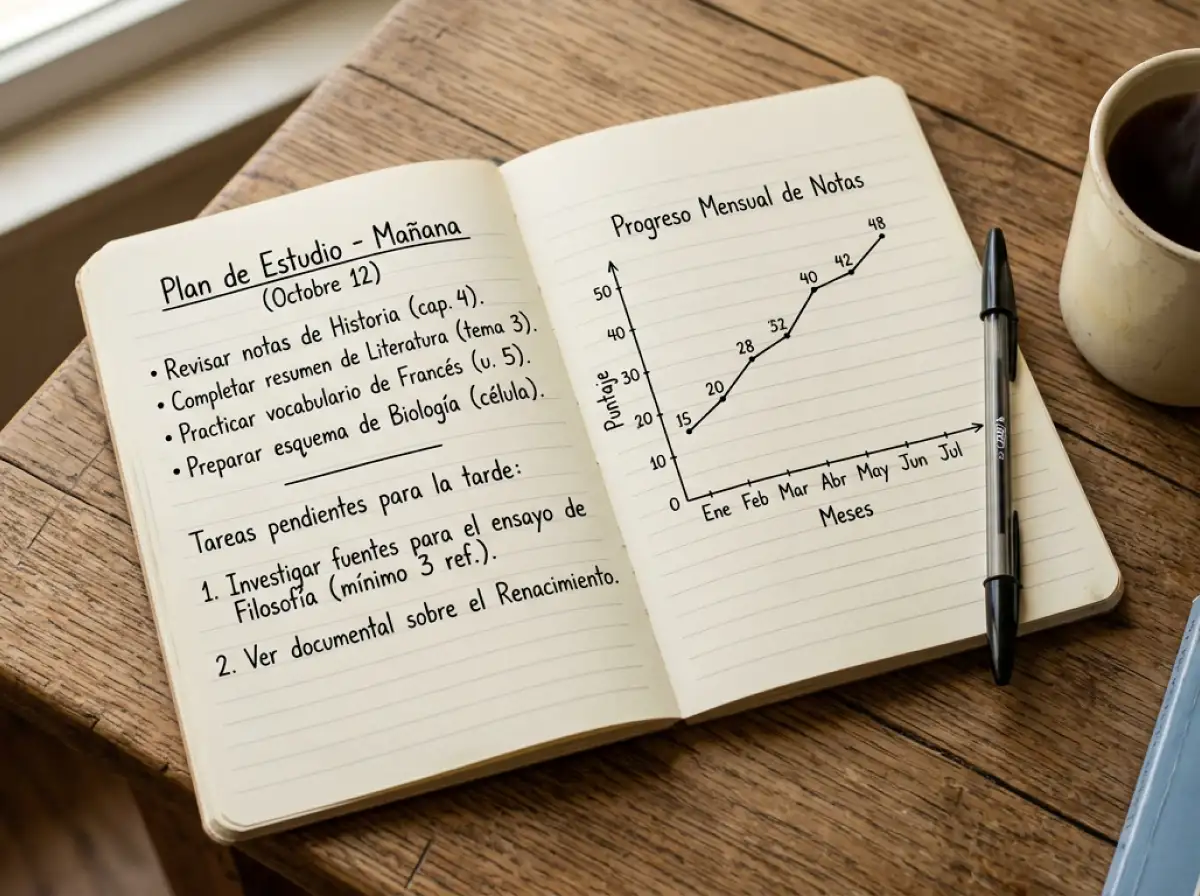 Plan de Estudio - Mañana
(Octubre 12)
• Revisar notas de Historia (cap. 4).
• Completar resumen de Literatura (tema 3).
• Practicar vocabulario de Francés (u. 5).
• Preparar esquema de Biología (célula).
Tareas pendientes para la tarde:
1. Investigar fuentes para el ensayo de
Filosofía (mínimo 3 ref.).
2. Ver documental sobre el Renacimiento.
Progreso Mensual de Notas
Puntaje
50
40
30
20
10
0
15
20
28
32
40
42
48
Ene Feb Mar Abr May Jun Jul
Meses